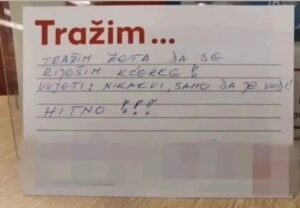 Tražim...
TRAŽIM ZETA DA SE
RIJEŠIM KĆERKE!
UVJETI: NIKAKVI, SAMO DA JE VOZI!
HITNO !!!